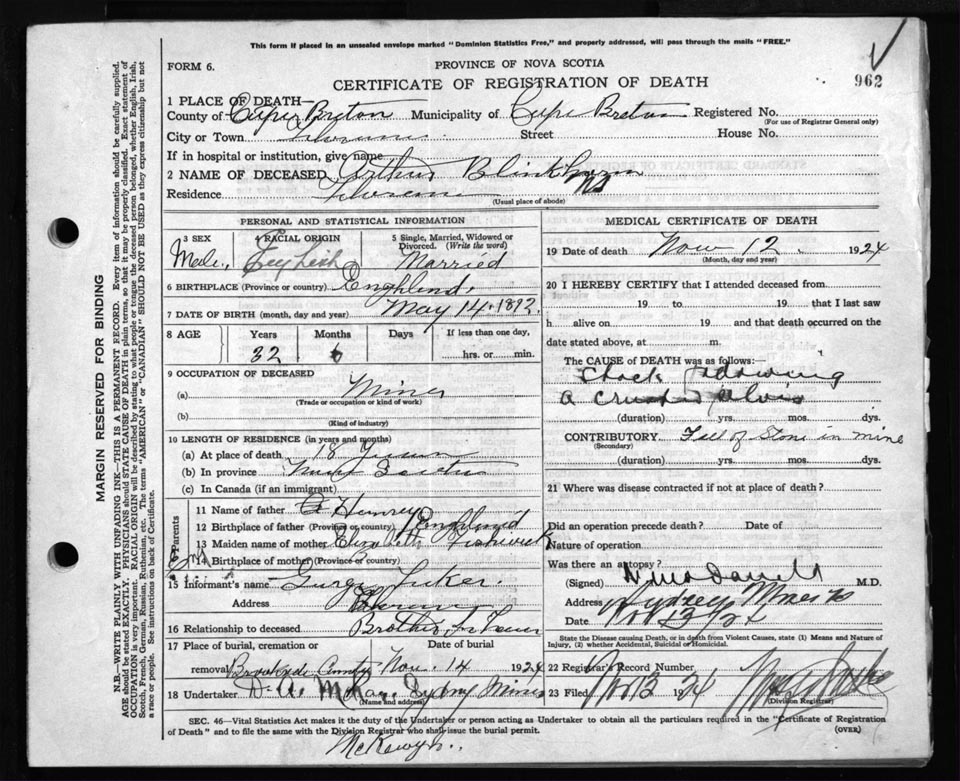 This form if placed in an unsealed envelope marked "Dominion Statistics Free," and properly addressed, will pass through the mails "FREE."
FORM 6.
PROVINCE OF NOVA SCOTIA
962
CERTIFICATE OF REGISTRATION OF DEATH
1 PLACE OF DEATH—
County of Cape Breton Municipality of Cape Breton Registered No.
(For use of Registrar General only)
City or Town Florence Street House No.
If in hospital or institution, give name
2 NAME OF DECEASED Arthur Blinkhorn
Residence Florence NS
(Usual place of abode)
PERSONAL AND STATISTICAL INFORMATION
3 SEX 4 RACIAL ORIGIN 5 Single, Married, Widowed or Divorced. (Write the word)
Male English Married
6 BIRTHPLACE (Province or country) England
7 DATE OF BIRTH (month, day and year) May 14. 1892.
8 AGE Years Months Days If less than one day,
32 6 hrs. or min.
9 OCCUPATION OF DECEASED
(a) Miner
(Trade or occupation or kind of work)
(b)
(Kind of industry)
10 LENGTH OF RESIDENCE (in years and months)
(a) At place of death 18 years
(b) In province Nova Scotia
(c) In Canada (if an immigrant)
Parents
11 Name of father Henrey
12 Birthplace of father (Province or country) England
13 Maiden name of mother Elizabeth Fishwick
14 Birthplace of mother (Province or country) Eng
15 Informant's name George
Address Florence
16 Relationship to deceased Brother in law
17 Place of burial, cremation or removal Date of burial
Brookside Nov. 14 1924
18 Undertaker D. A. McKay. Sydny Mines
(Name and address)
MEDICAL CERTIFICATE OF DEATH
19 Date of death Nov 12. 1924
(Month, day and year)
20 I HEREBY CERTIFY that I attended deceased from
19 to 19 that I last saw
h alive on 19 and that death occurred on the
date stated above, at m.
The CAUSE OF DEATH was as follows:—
Shock following
a crushed pelvis
(duration) yrs. mos. dys.
CONTRIBUTORY Fall of Stone in mine
(Secondary)
(duration) yrs. mos. dys.
21 Where was disease contracted if not at place of death?
Did an operation precede death? Date of
Nature of operation
Was there an autopsy?
(Signed) M.D.
Address Sydney Mines NS
Date Nov 13/24
State the Disease causing Death, or in death from Violent Causes, state (1) Means and Nature of Injury, (2) whether Accidental, Suicidal or Homicidal.
22 Registrar's Record Number
23 Filed Nov 13 1924
(Division Registrar)
SEC. 46—Vital Statistics Act makes it the duty of the Undertaker or person acting as Undertaker to obtain all the particulars required in the "Certificate of Registration of Death" and to file the same with the Division Registrar who shall issue the burial permit.
(OVER)
MARGIN RESERVED FOR BINDING
N.B.—WRITE PLAINLY WITH UNFADING INK—THIS IS A PERMANENT RECORD. Every item of information should be carefully supplied.
AGE should be stated EXACTLY. PHYSICIANS should STATE CAUSE OF DEATH in plain terms, so that it may be properly classified. Exact statement of
OCCUPATION is very important. RACIAL ORIGIN will be described by stating to what people or tongue the deceased person belonged, whether English, Irish,
Scotch, French, German, Russian, Ruthenian, etc. The terms "AMERICAN" or "CANADIAN" SHOULD NOT BE USED as they express citizenship but not
a race or people. See instructions on back of Certificate.